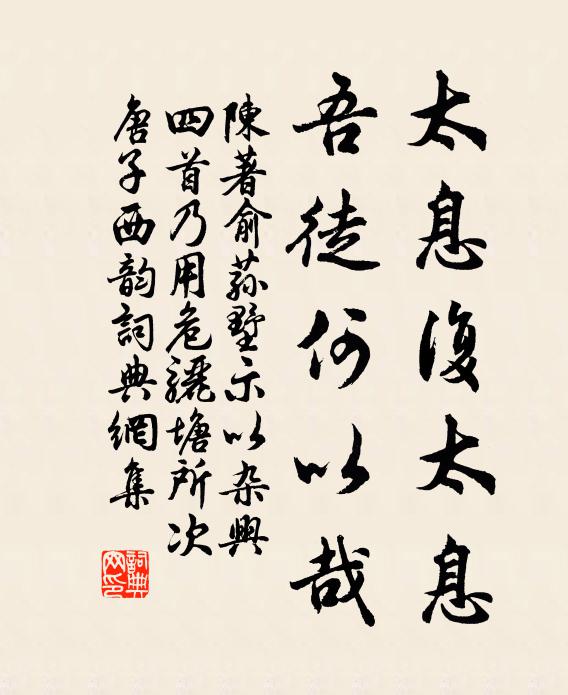 太息復太息
吾徒何以哉
陳著俞荪墅示以杂興
四首乃用危驪塘所次
唐子西韵詞典網集
詞典網印